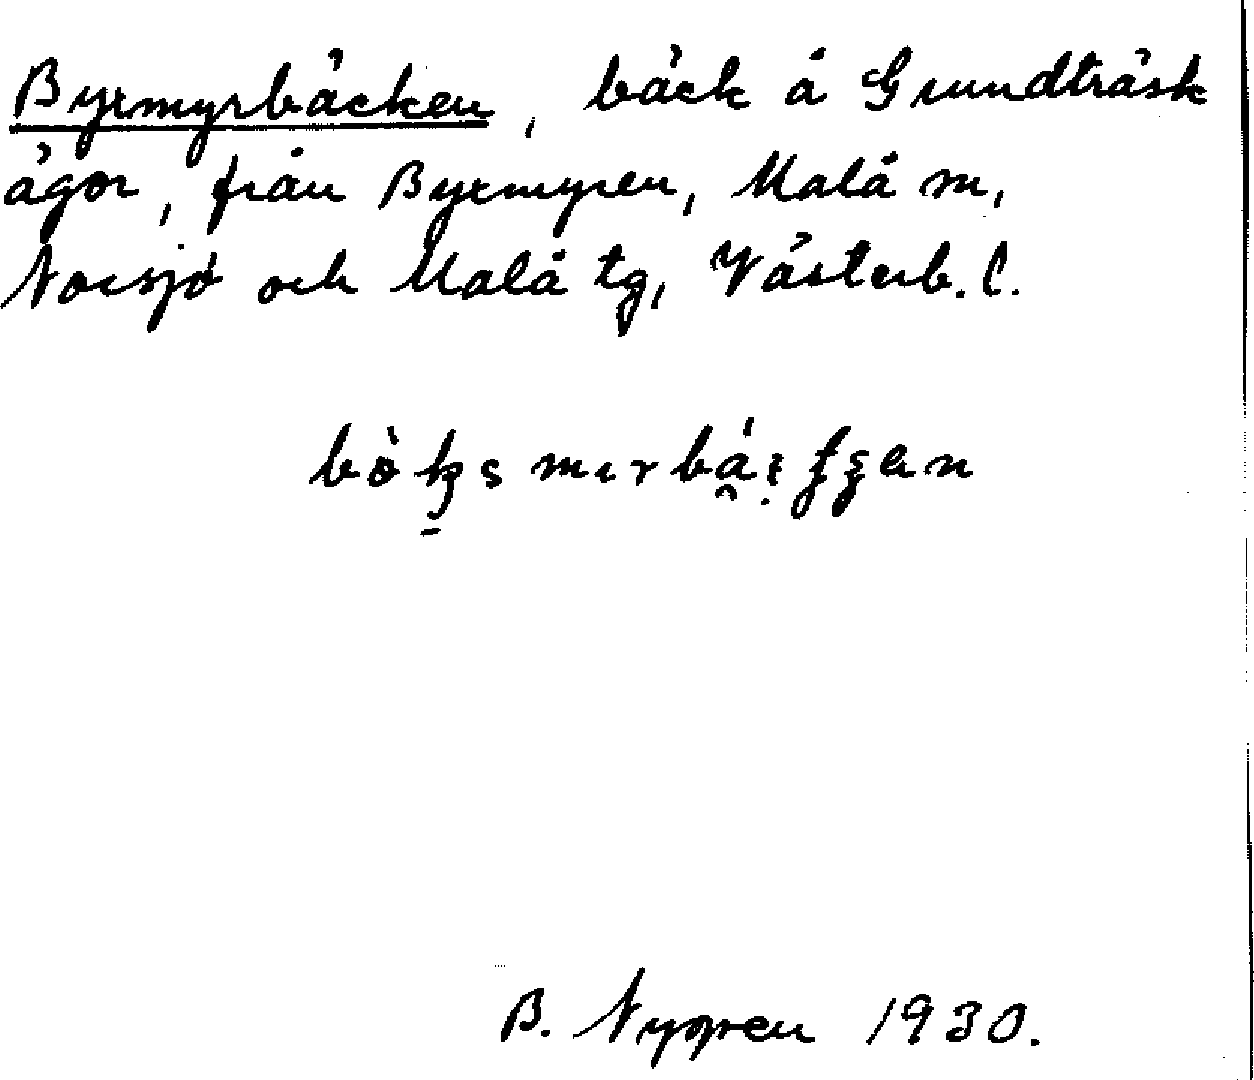 Byxmyrbäcken, bäck å Grundträsk
ägor, från Byxmyren, Malå sn,
Norsjö och Malå tg, Västerb. l.
B. Nygren 1930.